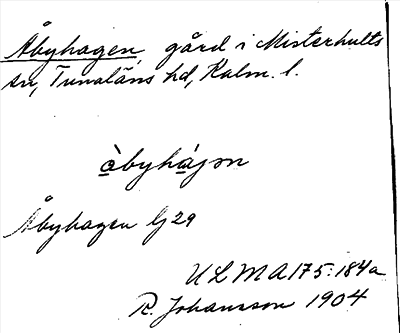 Åbyhagen, gård i Misterhults
sn, Tunaläns hd, Kalm. l.
àbyhájən
Åbyhagen Lj 29
ULMA 175:184a
R. Johansson 1904